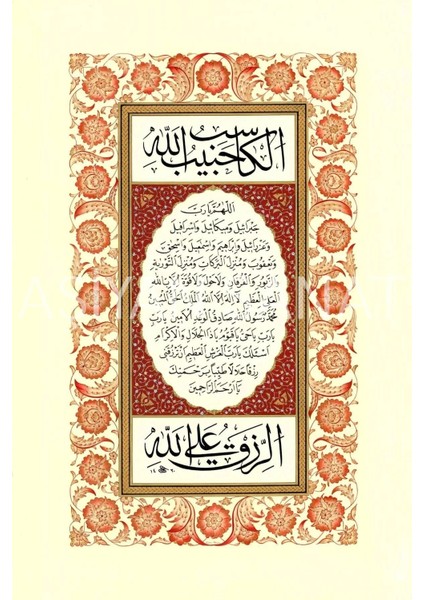 الكاسب حبيب الله
اللهم يا رب
جبرائيل وميكائيل واسرافيل
وعزرائيل وابراهيم واسمعيل واسحق
ويعقوب ومنزل البركات ومنزل التورية
والزبور والفرقان ولا حول ولا قوة الا بالله
العلي العظيم لا اله الا الله الملك الحق المبين
محمد رسول الله صادق الوعد الامين يا رب
يا رب يا حي يا قيوم يا ذا الجلال والاكرام
اسئلك يا رب العرش العظيم ان ترزقني
رزقا حلالا طيبا برحمتك
يا ارحم الراحمين
الرزق على الله